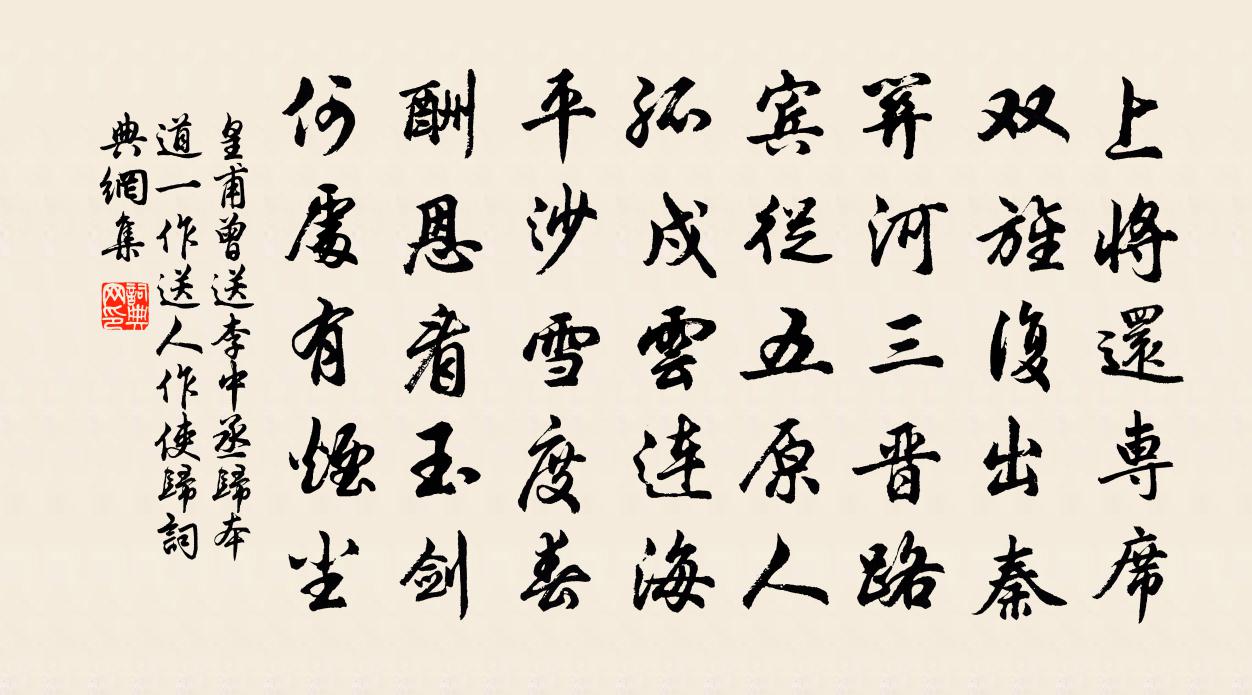 上將還専席
双旌復出秦
關河三晋路
宾從五原人
孤戍雲連海
平沙雪度春
酬恩看玉剑
何處有煙尘
皇甫曾送李中丞歸本
道一作送人作使歸詞
典網集
詞典网印